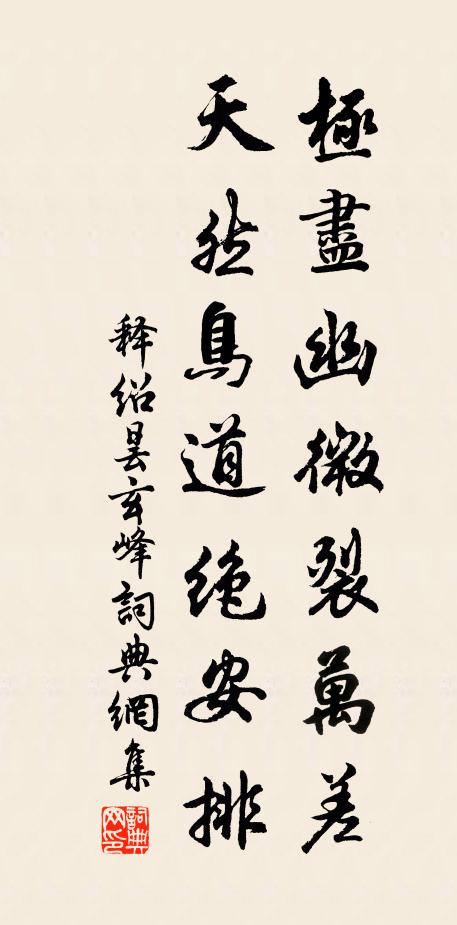 極盡幽微裂萬差
天然鳥道绝安排
释绍昙玄峰詞典網集
詞典网印